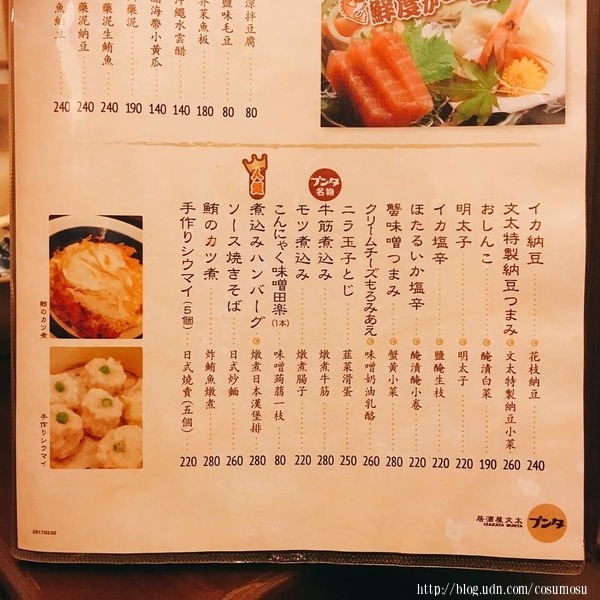 鮮度が
涼拌豆腐 80
鹽味毛豆 80
芥茉魚板 180
沖繩水雲醋 140
海帶小黃瓜 140
藥泥 190
藥泥生鮪魚 240
藥泥納豆 240
240
イカ納豆 花枝納豆 240
文太特製納豆つまみ C 文太特製納豆小菜 260
おしんこ C 醃漬白菜 190
明太子 C 明太子 220
イカ塩辛 C 鹽醃生枝 220
ほたるいか塩辛 C 醃漬醃小卷 220
蟹味噌つまみ C 蟹黃小菜 280
クリームチーズもろみあえ C 味噌奶油乳酪 260
ニラ玉子とじ 韮菜滑蛋 250
ブンタ名物
牛筋煮込み 燉煮牛筋 280
モツ煮込み 燉煮腸子 220
こんにゃく味噌田楽(1本) 味噌蒟蒻一枝 80
人氣
煮込みハンバーグ C 燉煮日本漢堡排 280
ソース焼きそば 日式炒麵 260
鮪のカツ煮 炸鮪魚燉煮 280
手作りシウマイ(5個) 日式燒賣(五個) 220
鮪のカツ煮
手作りシウマイ
20170330
居酒屋文太
IZAKAYA BUNTA
ブンタ
http://blog.udn.com/cosumosu